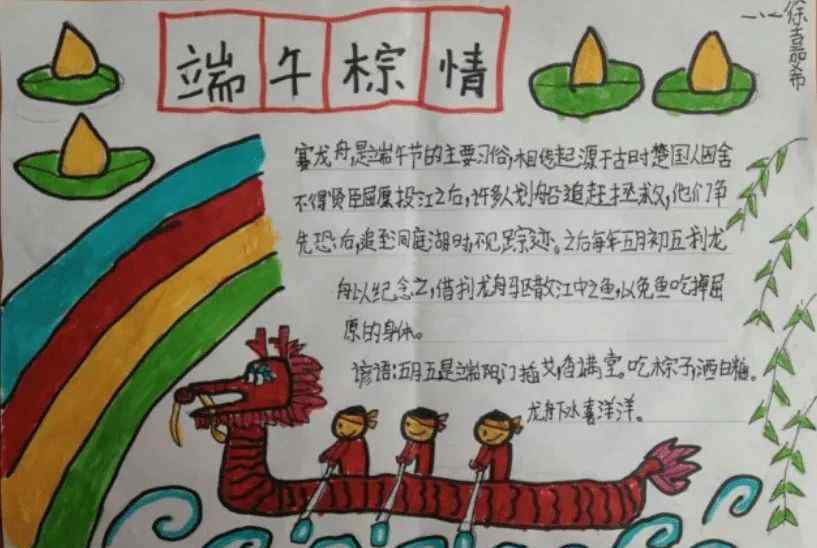 端午棕情
一八一徐嘉希
赛龙舟,是端午节的主要习俗,相传起源于古时楚国人因舍
不得贤臣屈原投江之后,许多人划船追赶拯救,他们争
先恐后,追至洞庭湖时不见踪迹。之后每年五月初五划龙
舟以纪念之,借划龙舟驱散江中之鱼,以免鱼吃掉屈
原的身体。
谚语:五月五是端阳,门插艾,香满堂。吃粽子,洒白糖。
龙舟下水喜洋洋。